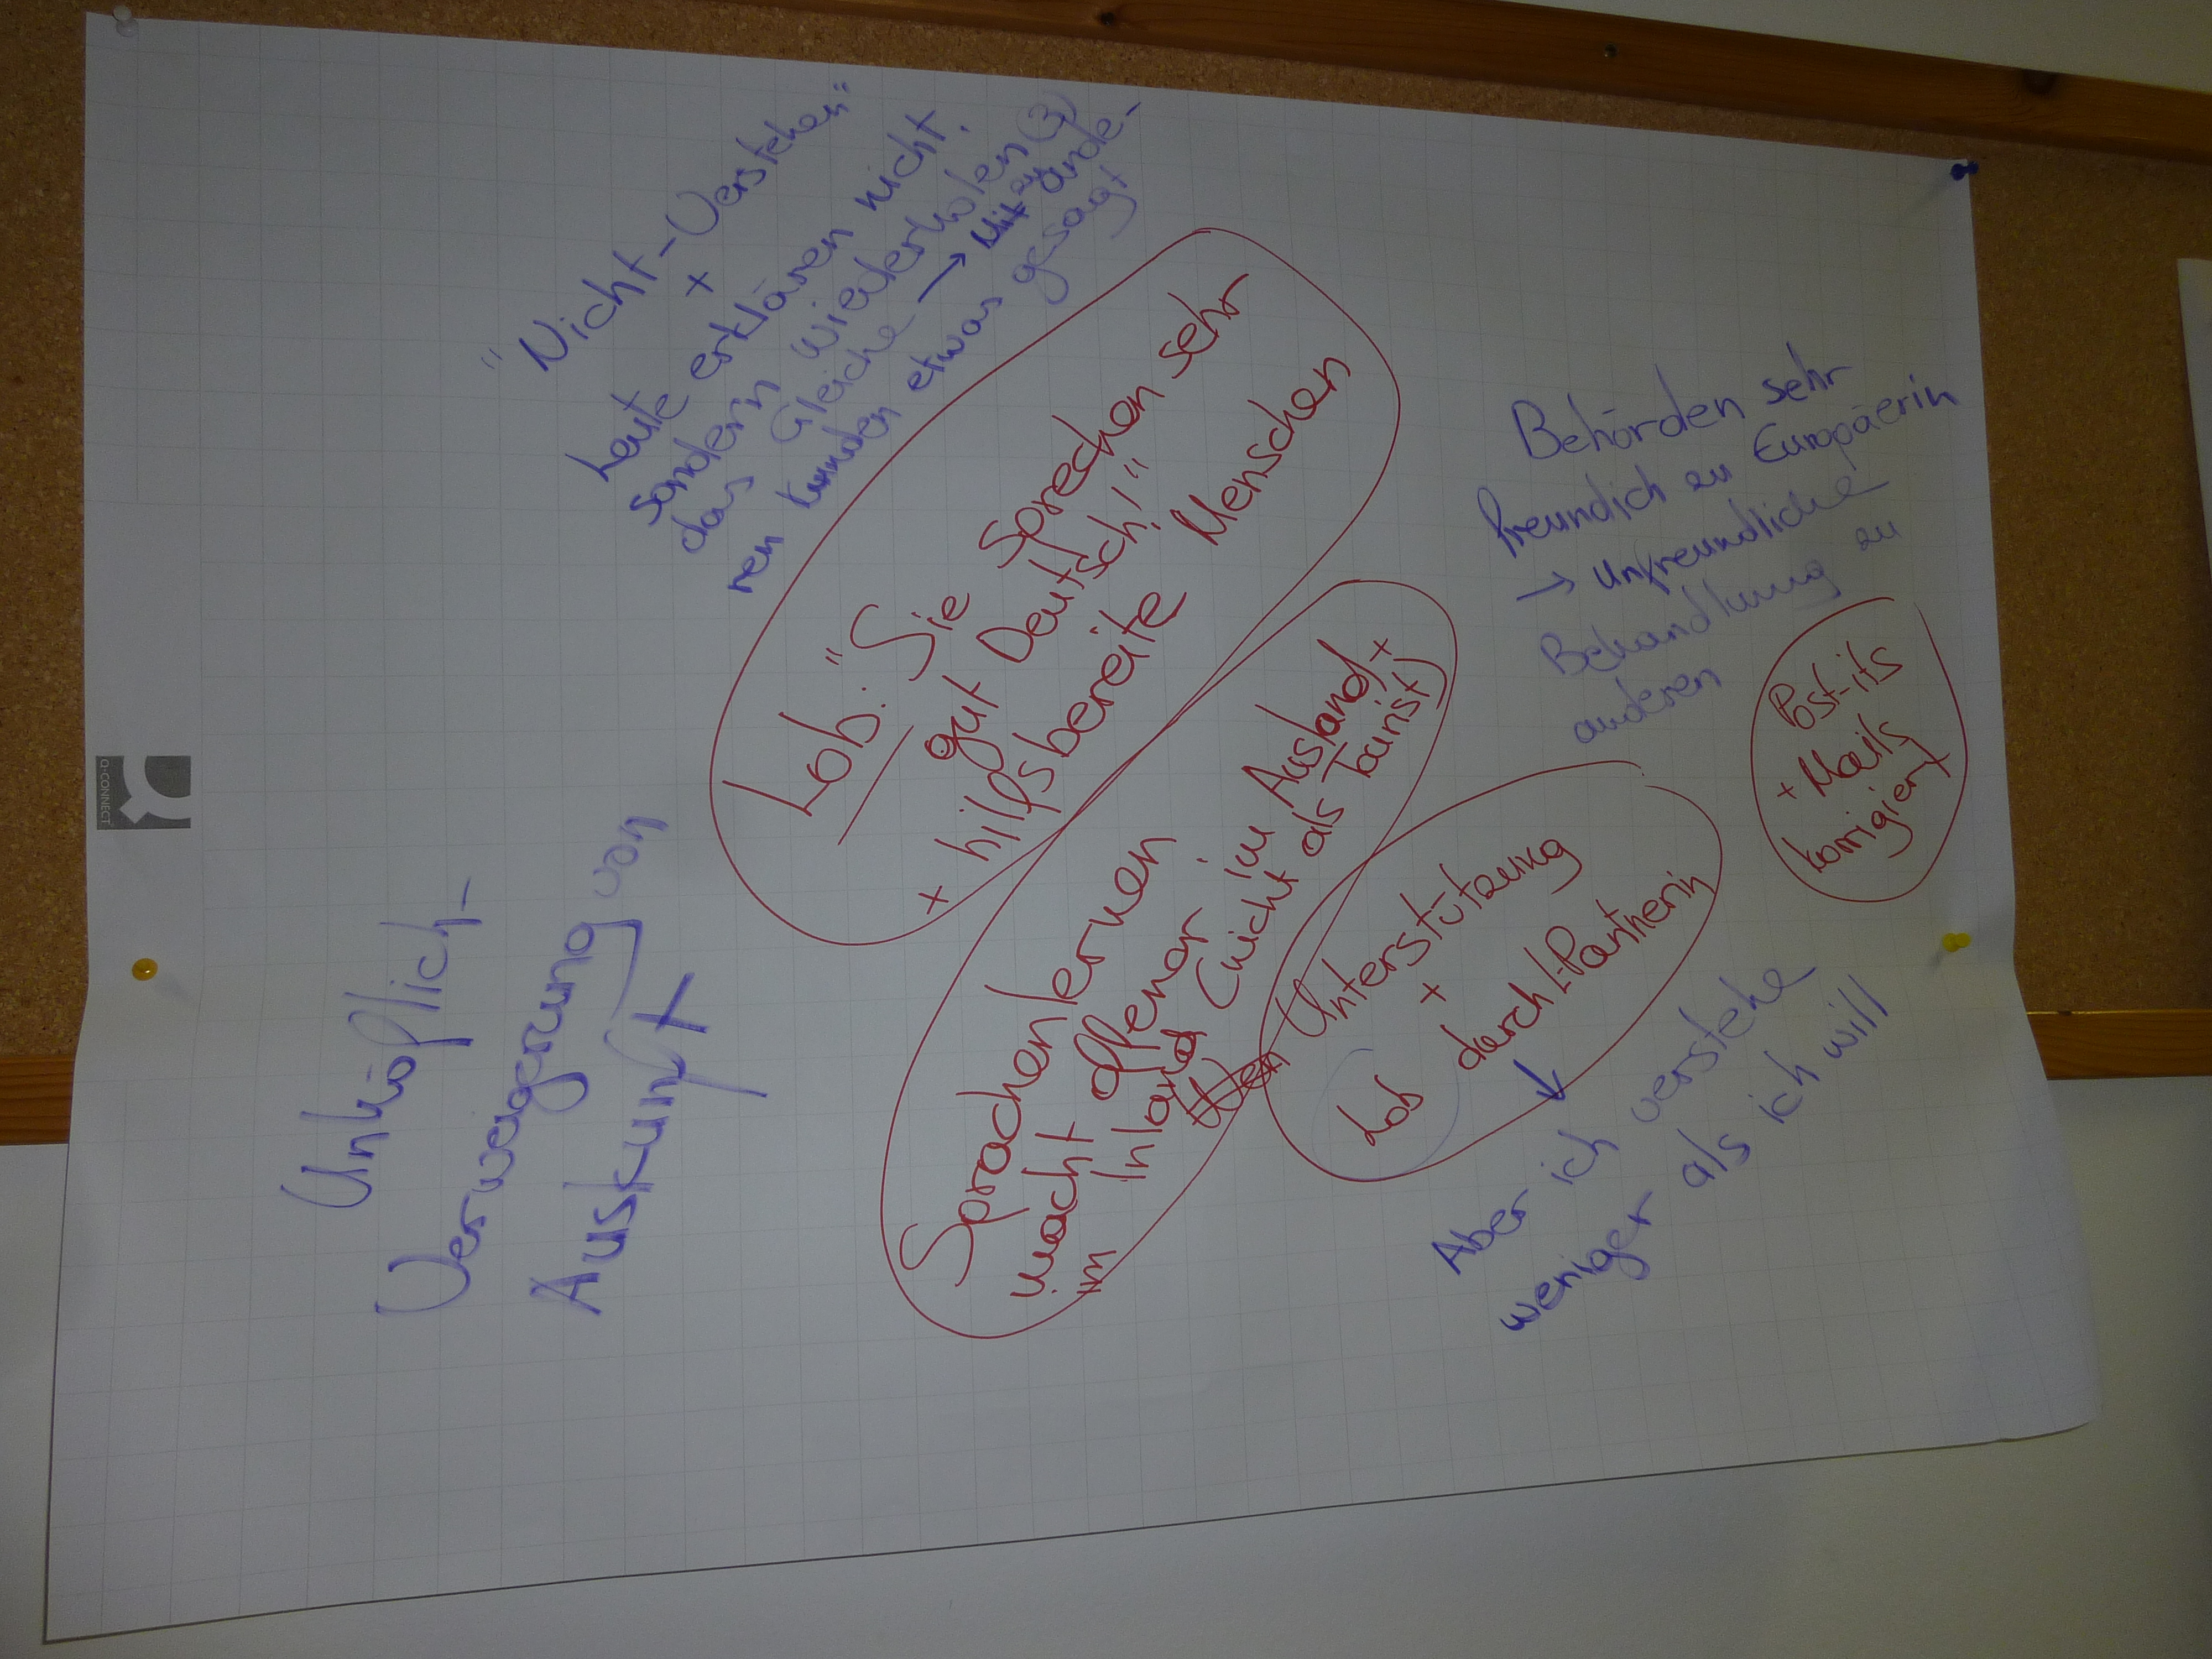 "Nicht-Verstehen"
+
Leute erklären nicht,
sondern wiederholen (3)
das Gleiche → Mit
ren Kunden etwas gesagt
Lob: "Sie sprechen sehr
gut Deutsch!"
+ hilfsbereite Menschen
Behörden sehr
freundich zu Europäerin
→ unfreundliche
Behandlung zu
anderen
Post-its
+ Mails
korrigiert
Sprachenlernen
macht offener im Ausland +
im Inland (nicht als Tourist)
Unterstützung
+
Lob durch L-Partnerin
Aber ich verstehe
weniger als ich will
Unhöflich-
Verweigerung von
Auskunft
Q-CONNECT